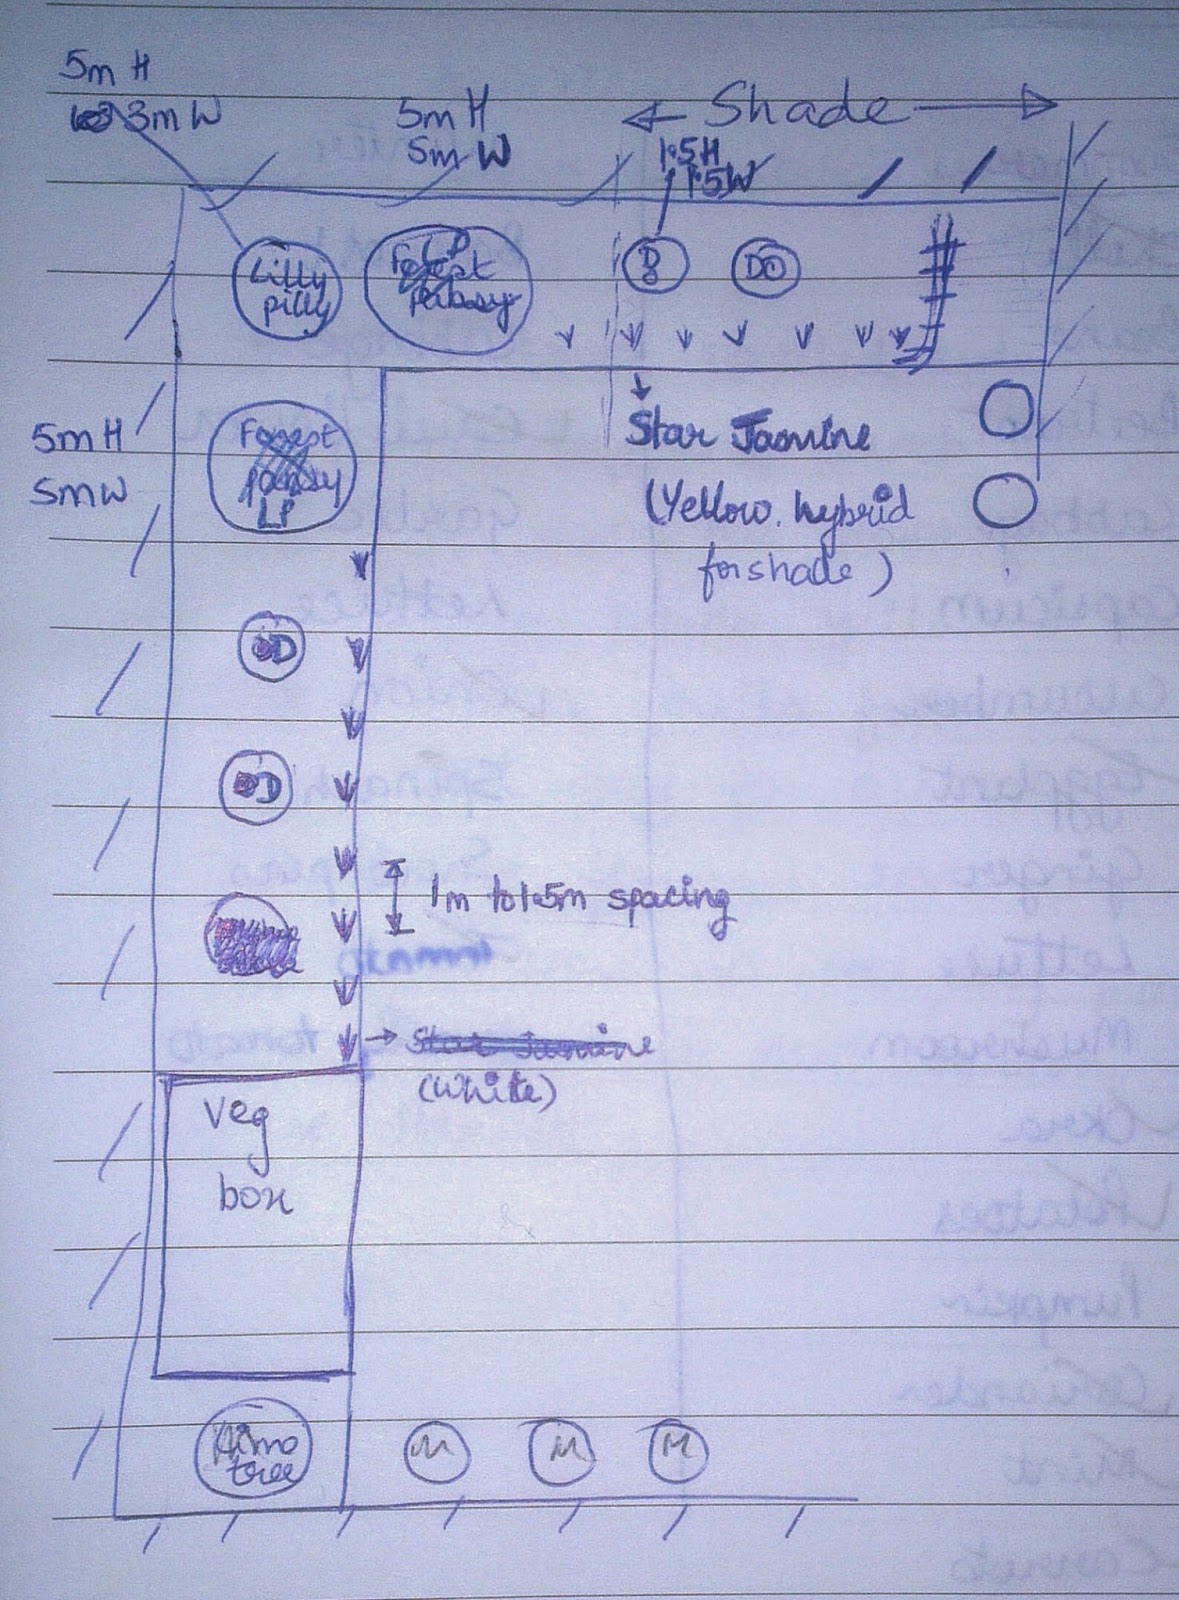 5m H
3m W
5m H
5m W
Shade
1.5H
1.5W
Lilly
pilly
LP
Forest
Pansy
D
DO
Star Jasmine
(Yellow hybrid
for shade)
5m H
5m W
Forest
pansy
LP
D
D
1m to 1.5m spacing
Star Jasmine
(White)
Veg
box
tree
M
M
M